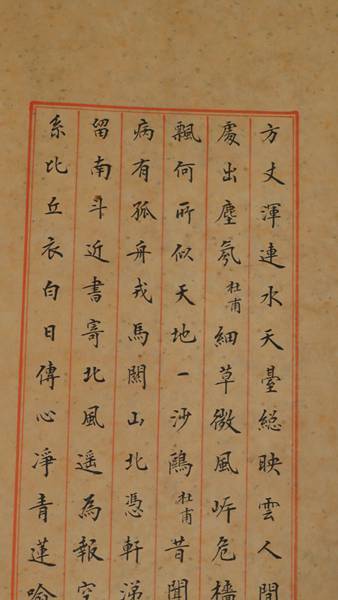 方丈渾連水天臺総映雲人間
處出塵氛杜甫細草微風岍危檣
飄何所似天地一沙鷗杜甫昔聞
病有孤舟戎馬關山北憑軒涕
留南斗近書寄北風遥為報空
系比丘衣白日傳心凈青蓮喻